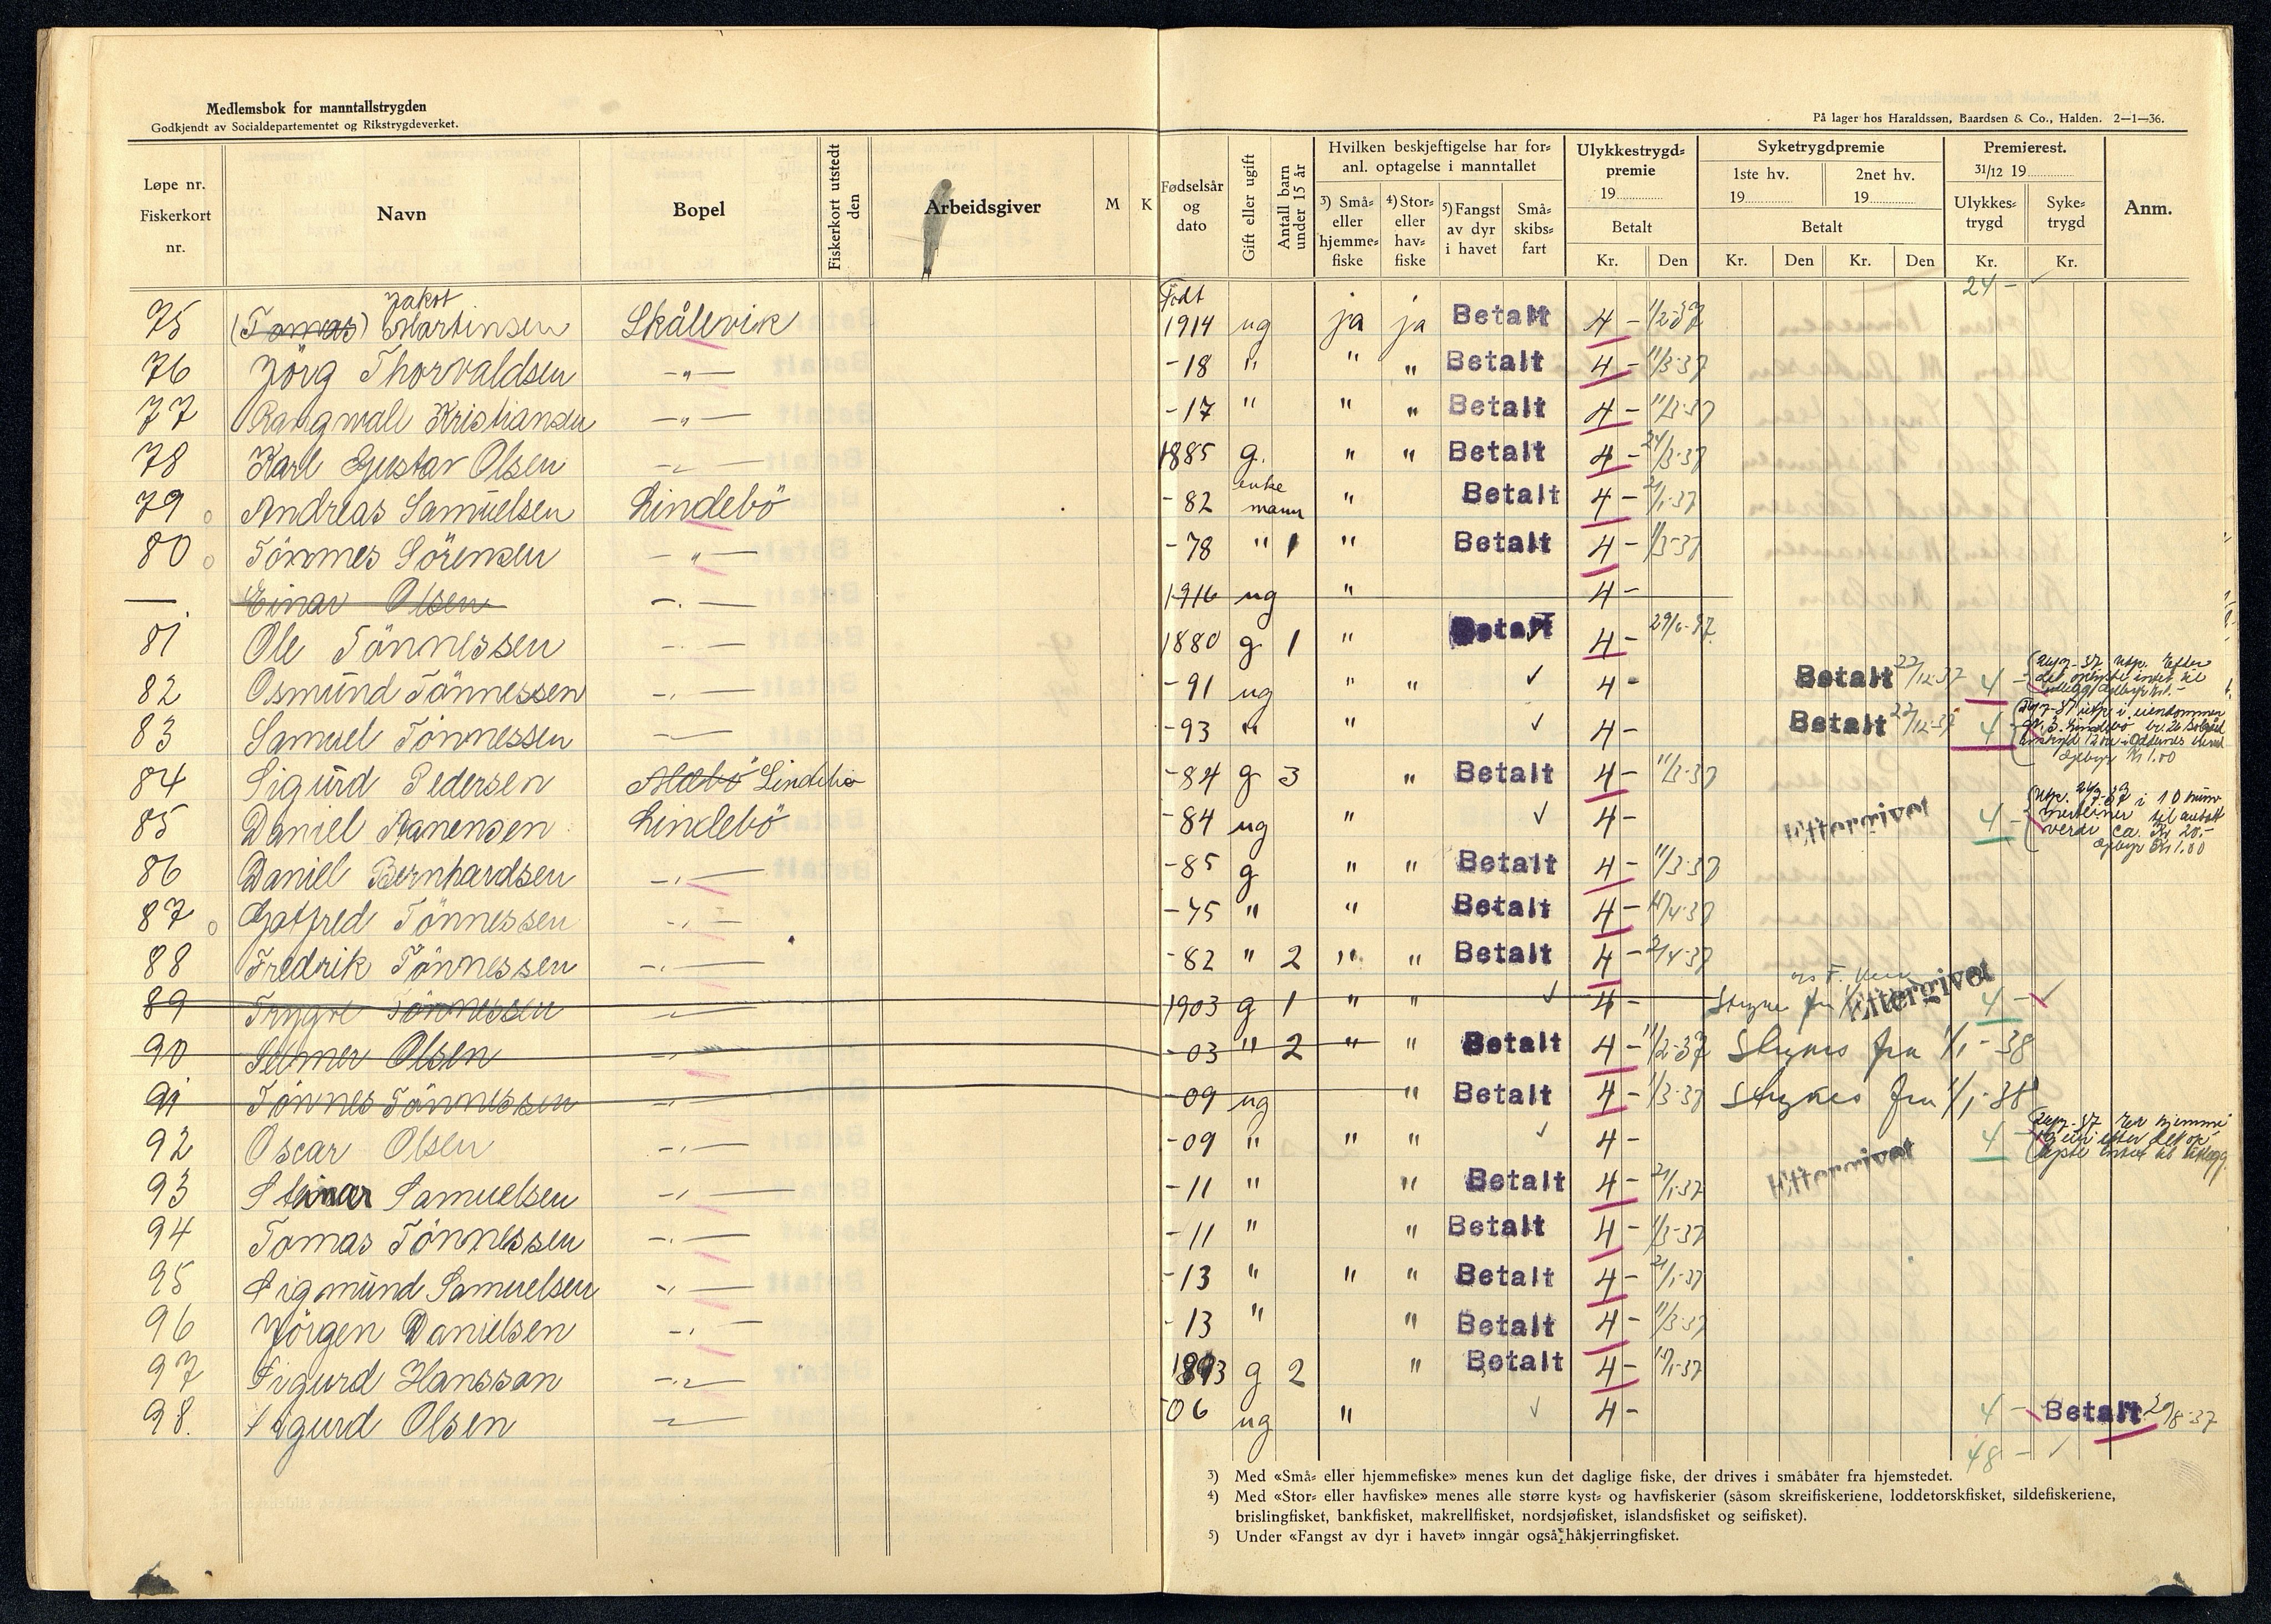 Medlemsbok for manntallstrygden
Godkjendt av Socialdepartementet og Rikstrygdeverket.
På lager hos Haraldssøn, Baardsen & Co., Halden. 2—1—36.
Løpe nr. Fiskerkort nr. Navn Bopel Fiskerkort utstedt den Arbeidsgiver M K
Fødselsår og dato Gift eller ugift Antall barn under 15 år
Hvilken beskjeftigelse har foranl. optagelse i manntallet
3) Små- eller hjemmefiske 4) Stor- eller havfiske 5) Fangst av dyr i havet Småskibsfart
Ulykkestrygdpremie 19 Betalt Kr. Den
Syketrygdpremie 1ste hv. 19 2net hv. 19 Betalt Kr. Den Kr. Den
Premierest. 31/12 19 Ulykkestrygd Kr. Syketrygd Kr. Anm.
24 -
75 (Tomas) Jakob Martinsen Skålevik Født 1914 ug ja ja Betalt 4 - 1/2-37
76 Jörg Thorvaldsen -"- -18 " " " Betalt 4 - 11/3-37
77 Rangvall Kristiansen -"- -17 " " " Betalt 4 - 11/3-37
78 Karl Gustav Olsen -"- 1885 g. " " Betalt 4 - 24/3-37
79 Andreas Samuelsen Lindebö -82 enkemann " Betalt 4 - 21/1-37
80 Tönnes Sörensen -"- -78 " 1 " Betalt 4 - 1/3-37
— Einar Olsen -"- 1916 ug " 4 -
81 Ole Tönnessen -"- 1880 g 1 " Betalt 4 - 29/6-37
82 Osmund Tönnessen -"- -91 ug " " ✓ 4 - Betalt 22/12-37 4 -
83 Samuel Tönnessen -"- -93 " " ✓ 4 - Betalt 22/12-37 4 -
84 Sigurd Pedersen Lindebö -84 g 3 " Betalt 4 - 11/3-37
85 Daniel Aanensen Lindebö -84 ug " ✓ 4 - Eftergivet 4 - verdi ca. Kr 20.-
86 Daniel Bernhardsen -"- -85 g " " Betalt 4 - 11/3-37
87 Gotfred Tönnessen -"- -75 " " Betalt 4 - 17/4-37
88 Fredrik Tönnessen -"- -82 " 2 " " Betalt 4 - 2/4-37
89 Trygve Tönnessen -"- 1903 g 1 " " ✓ 4 - Strykes fra Eftergivet 4 - ✓
90 Selmer Olsen -"- -03 " 2 " " Betalt 4 - 11/2-37 Strykes fra 1/1-38
91 Tönnes Tönnessen -"- -09 ug " Betalt 4 - 1/3-37 Strykes fra 1/1-38
92 Oscar Olsen -"- -09 " " " ✓ 4 - Eftergivet 4 -
93 Steinar Samuelsen -"- -11 " " Betalt 4 - 21/1-37
94 Tomas Tönnessen -"- -11 " " Betalt 4 - 1/3-37
95 Sigmund Samuelsen -"- -13 " " " Betalt 4 - 21/1-37
96 Jörgen Danielsen -"- -13 " " Betalt 4 - 11/3-37
97 Sigurd Hansson -"- 1893 g 2 " Betalt 4 - 19/1-37
98. Sigurd Olsen -"- 06 ug " ✓ 4 - 4 - Betalt 20/8-37
48 - ✓
3) Med «Små- eller hjemmefiske» menes kun det daglige fiske, der drives i småbåter fra hjemstedet.
4) Med «Stor- eller havfiske» menes alle større kyst- og havfiskerier (såsom skreifiskeriene, loddetorskfisket, sildefiskeriene,
brislingfisket, bankfisket, makrellfisket, nordsjøfisket, islandsfisket og seifisket).
5) Under «Fangst av dyr i havet» inngår også håkjerringfisket.